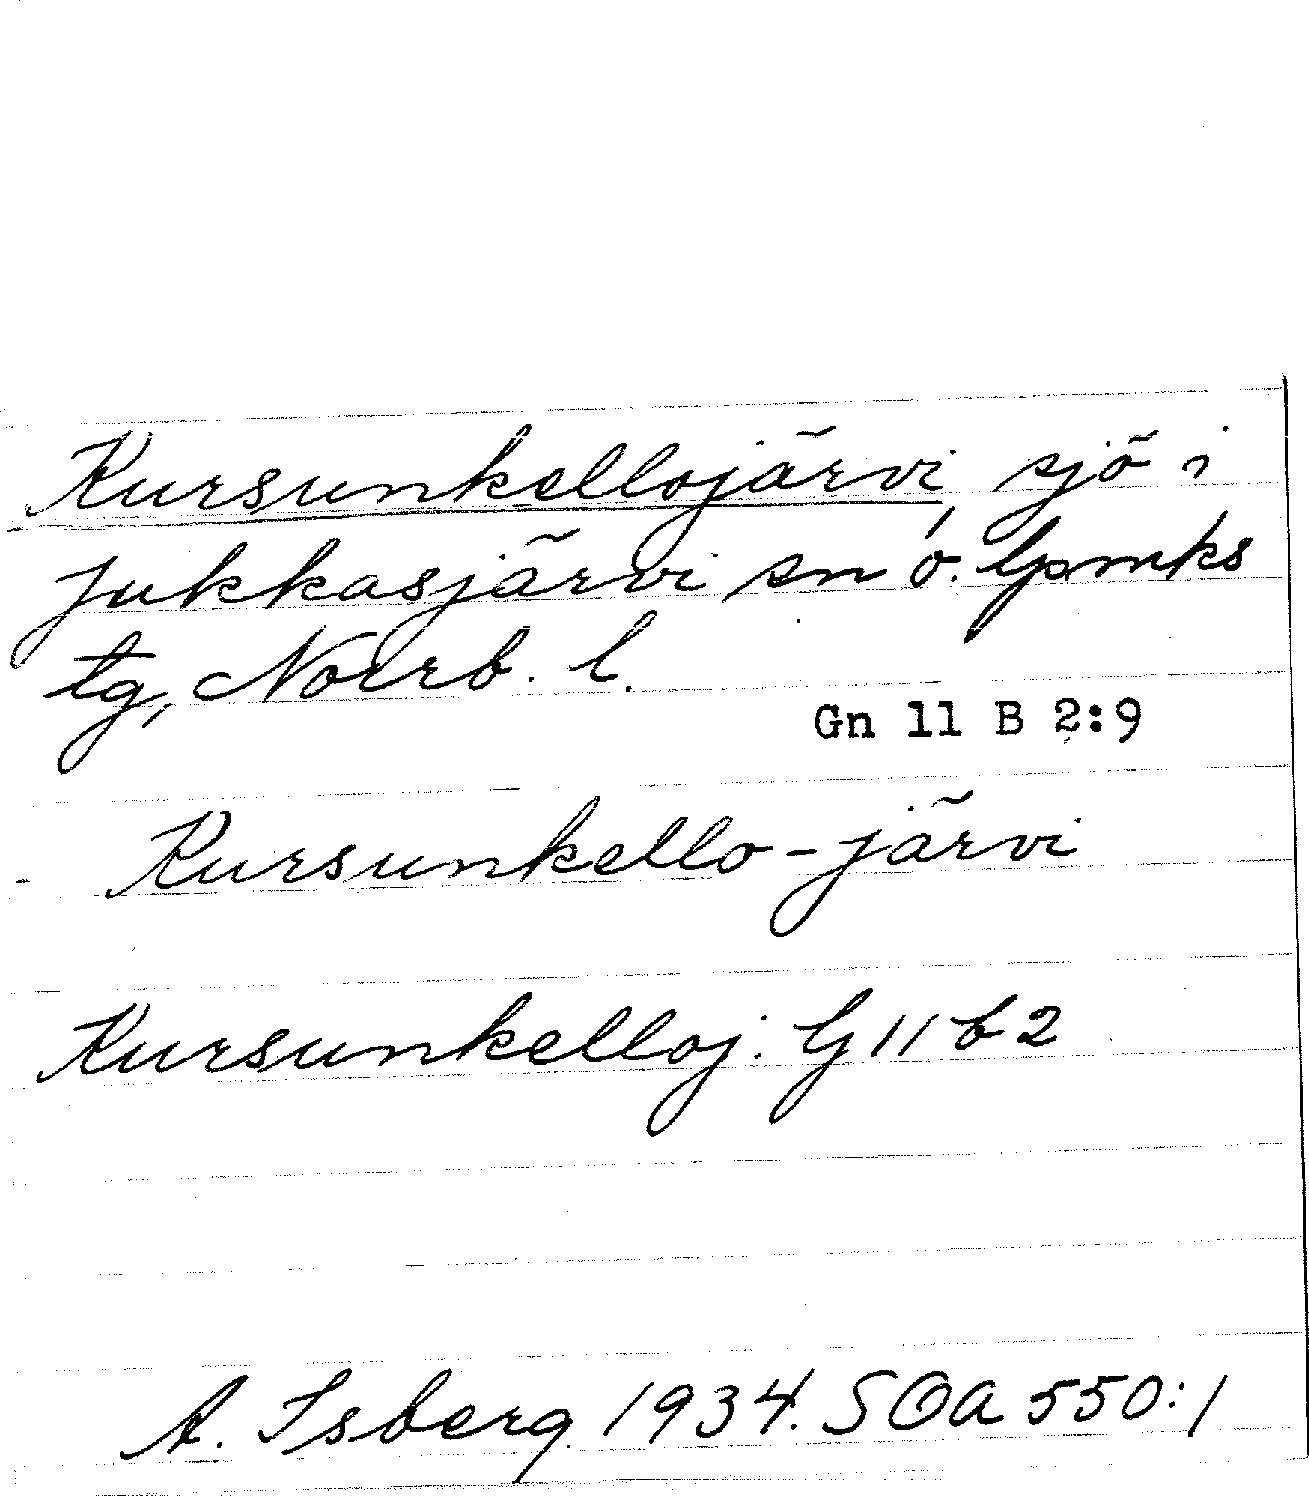 Kursunkellojärvi, sjö i
Jukkasjärvi sn ö. lpmks
tg, Norrb. l.
Gn 11 B 2:9
Kursunkello-järvi
Kursunkelloj. G 11 b 2
A. Isberg 1934. SOA 550:1